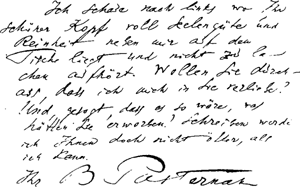 Ich schaue nach links wo Ihr
schöner Kopf voll Seelengüte und
Reinheit neben mir auf dem
Tische liegt und nicht zu la-
chen aufhört. Wollen Sie durch-
aus, dass ich mich in Sie verliebe?
Und, gesagt dass es so wäre, was
hätten Sie erworben? Schreiben werde
ich Ihnen doch nicht öfter, als
ich kann.
Ihr B Pasternak